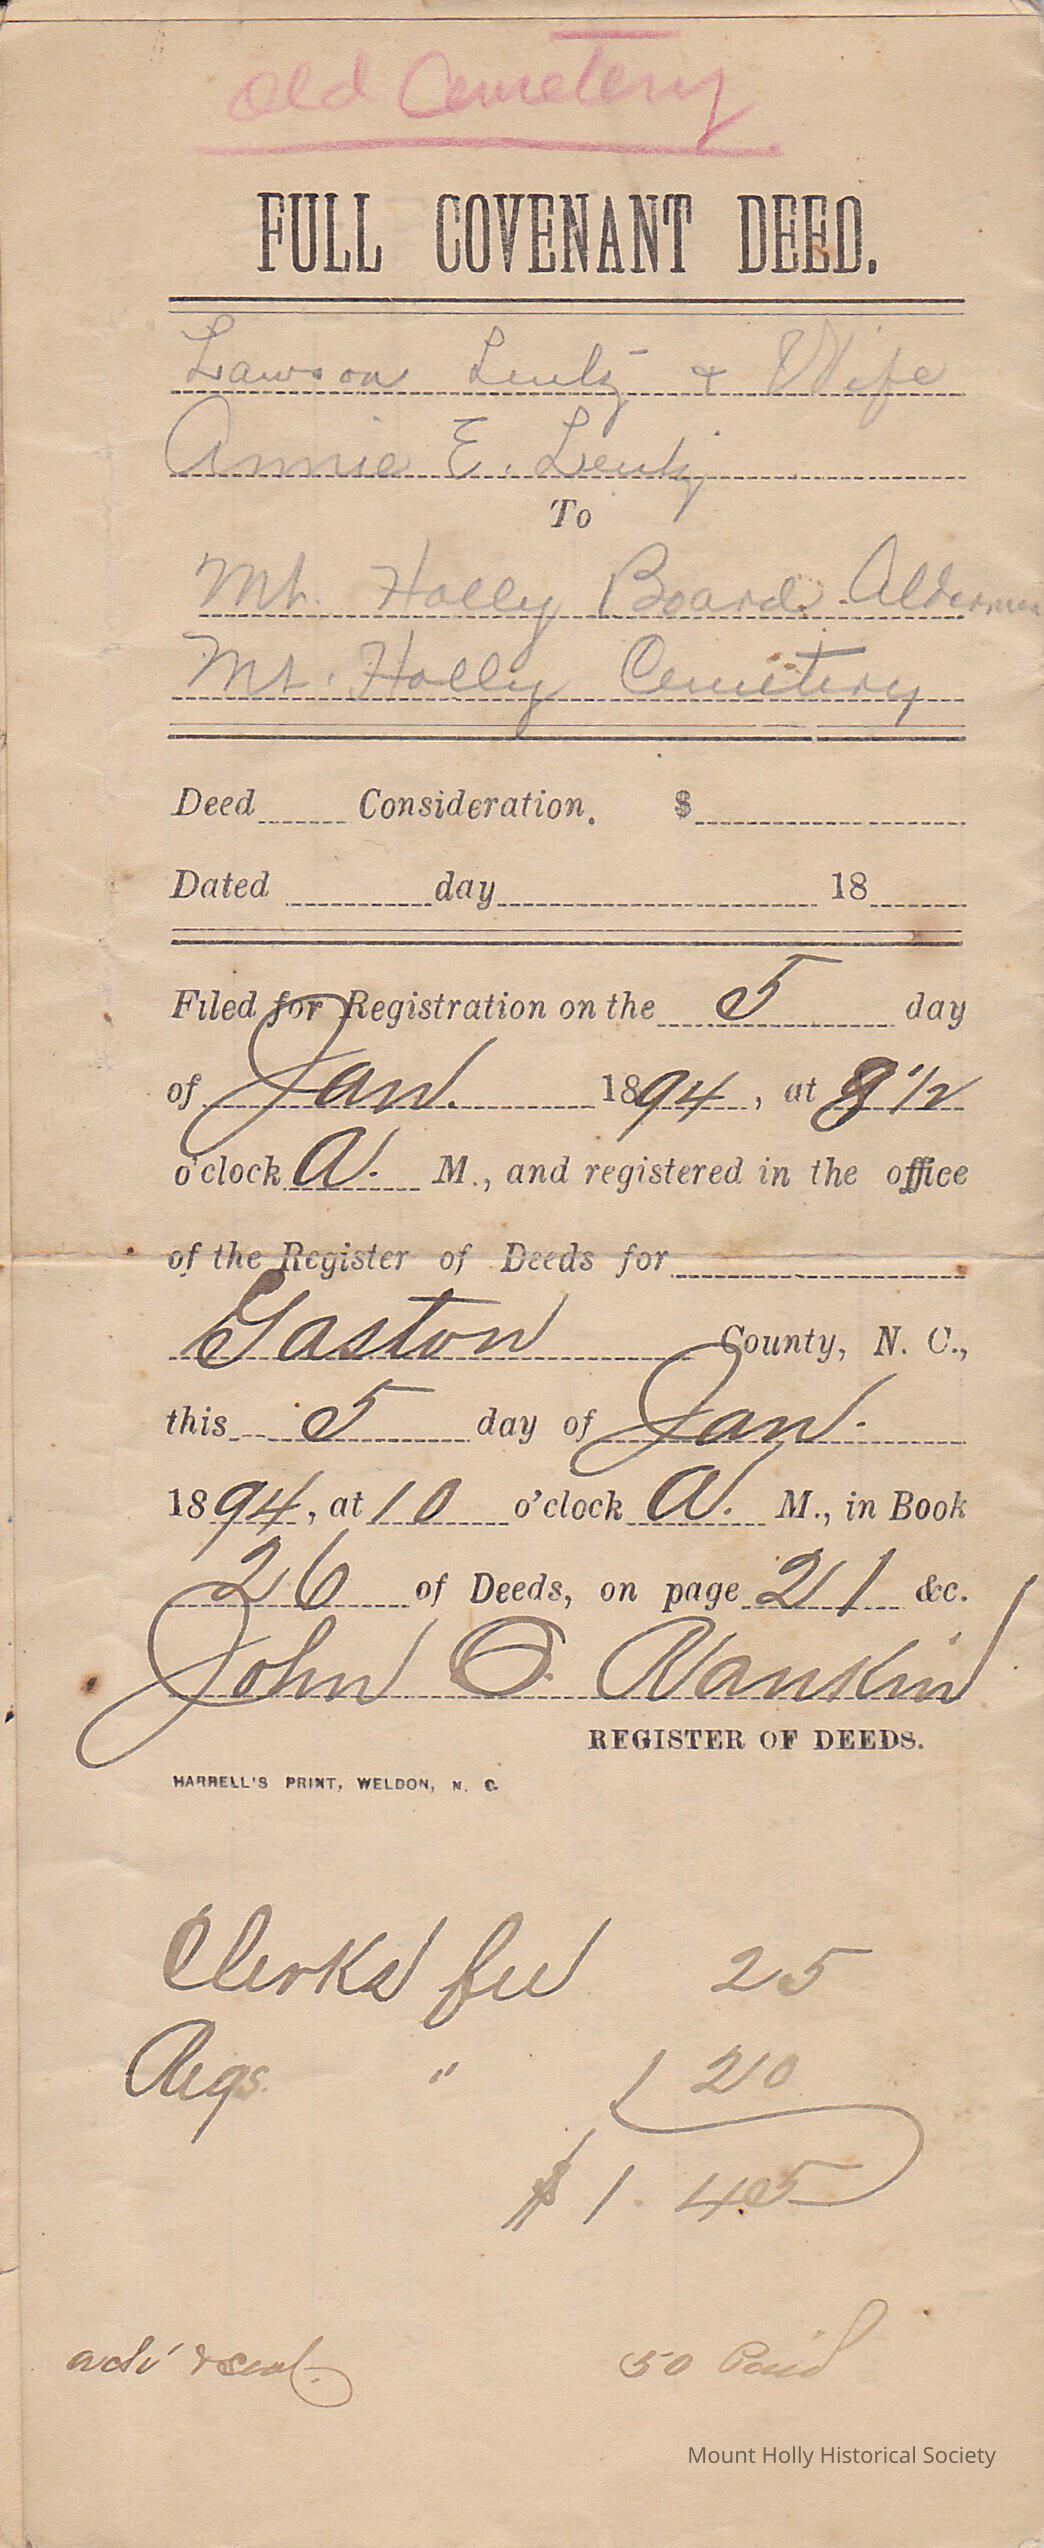 Old Cemetery
FULL COVENANT DEED.
Lawson Lentz & Wife
Annie E. Lentz
To
Mt. Holly Board Aldermen
Mt. Holly Cemetery
Deed Consideration. $
Dated day 18
Filed for Registration on the 5 day
of Jan. 1894, at 8 1/2
o'clock A. M., and registered in the office
of the Register of Deeds for
Gaston County, N. C.,
this 5 day of Jan.
1894, at 10 o'clock A. M., in Book
26 of Deeds, on page 21 &c.
John O. Rankin
REGISTER OF DEEDS.
HARRELL'S PRINT, WELDON, N. C.
Clerks fee 25
Regs. " 1 20
$1.45
& Seal. 50 Paid
Mount Holly Historical Society